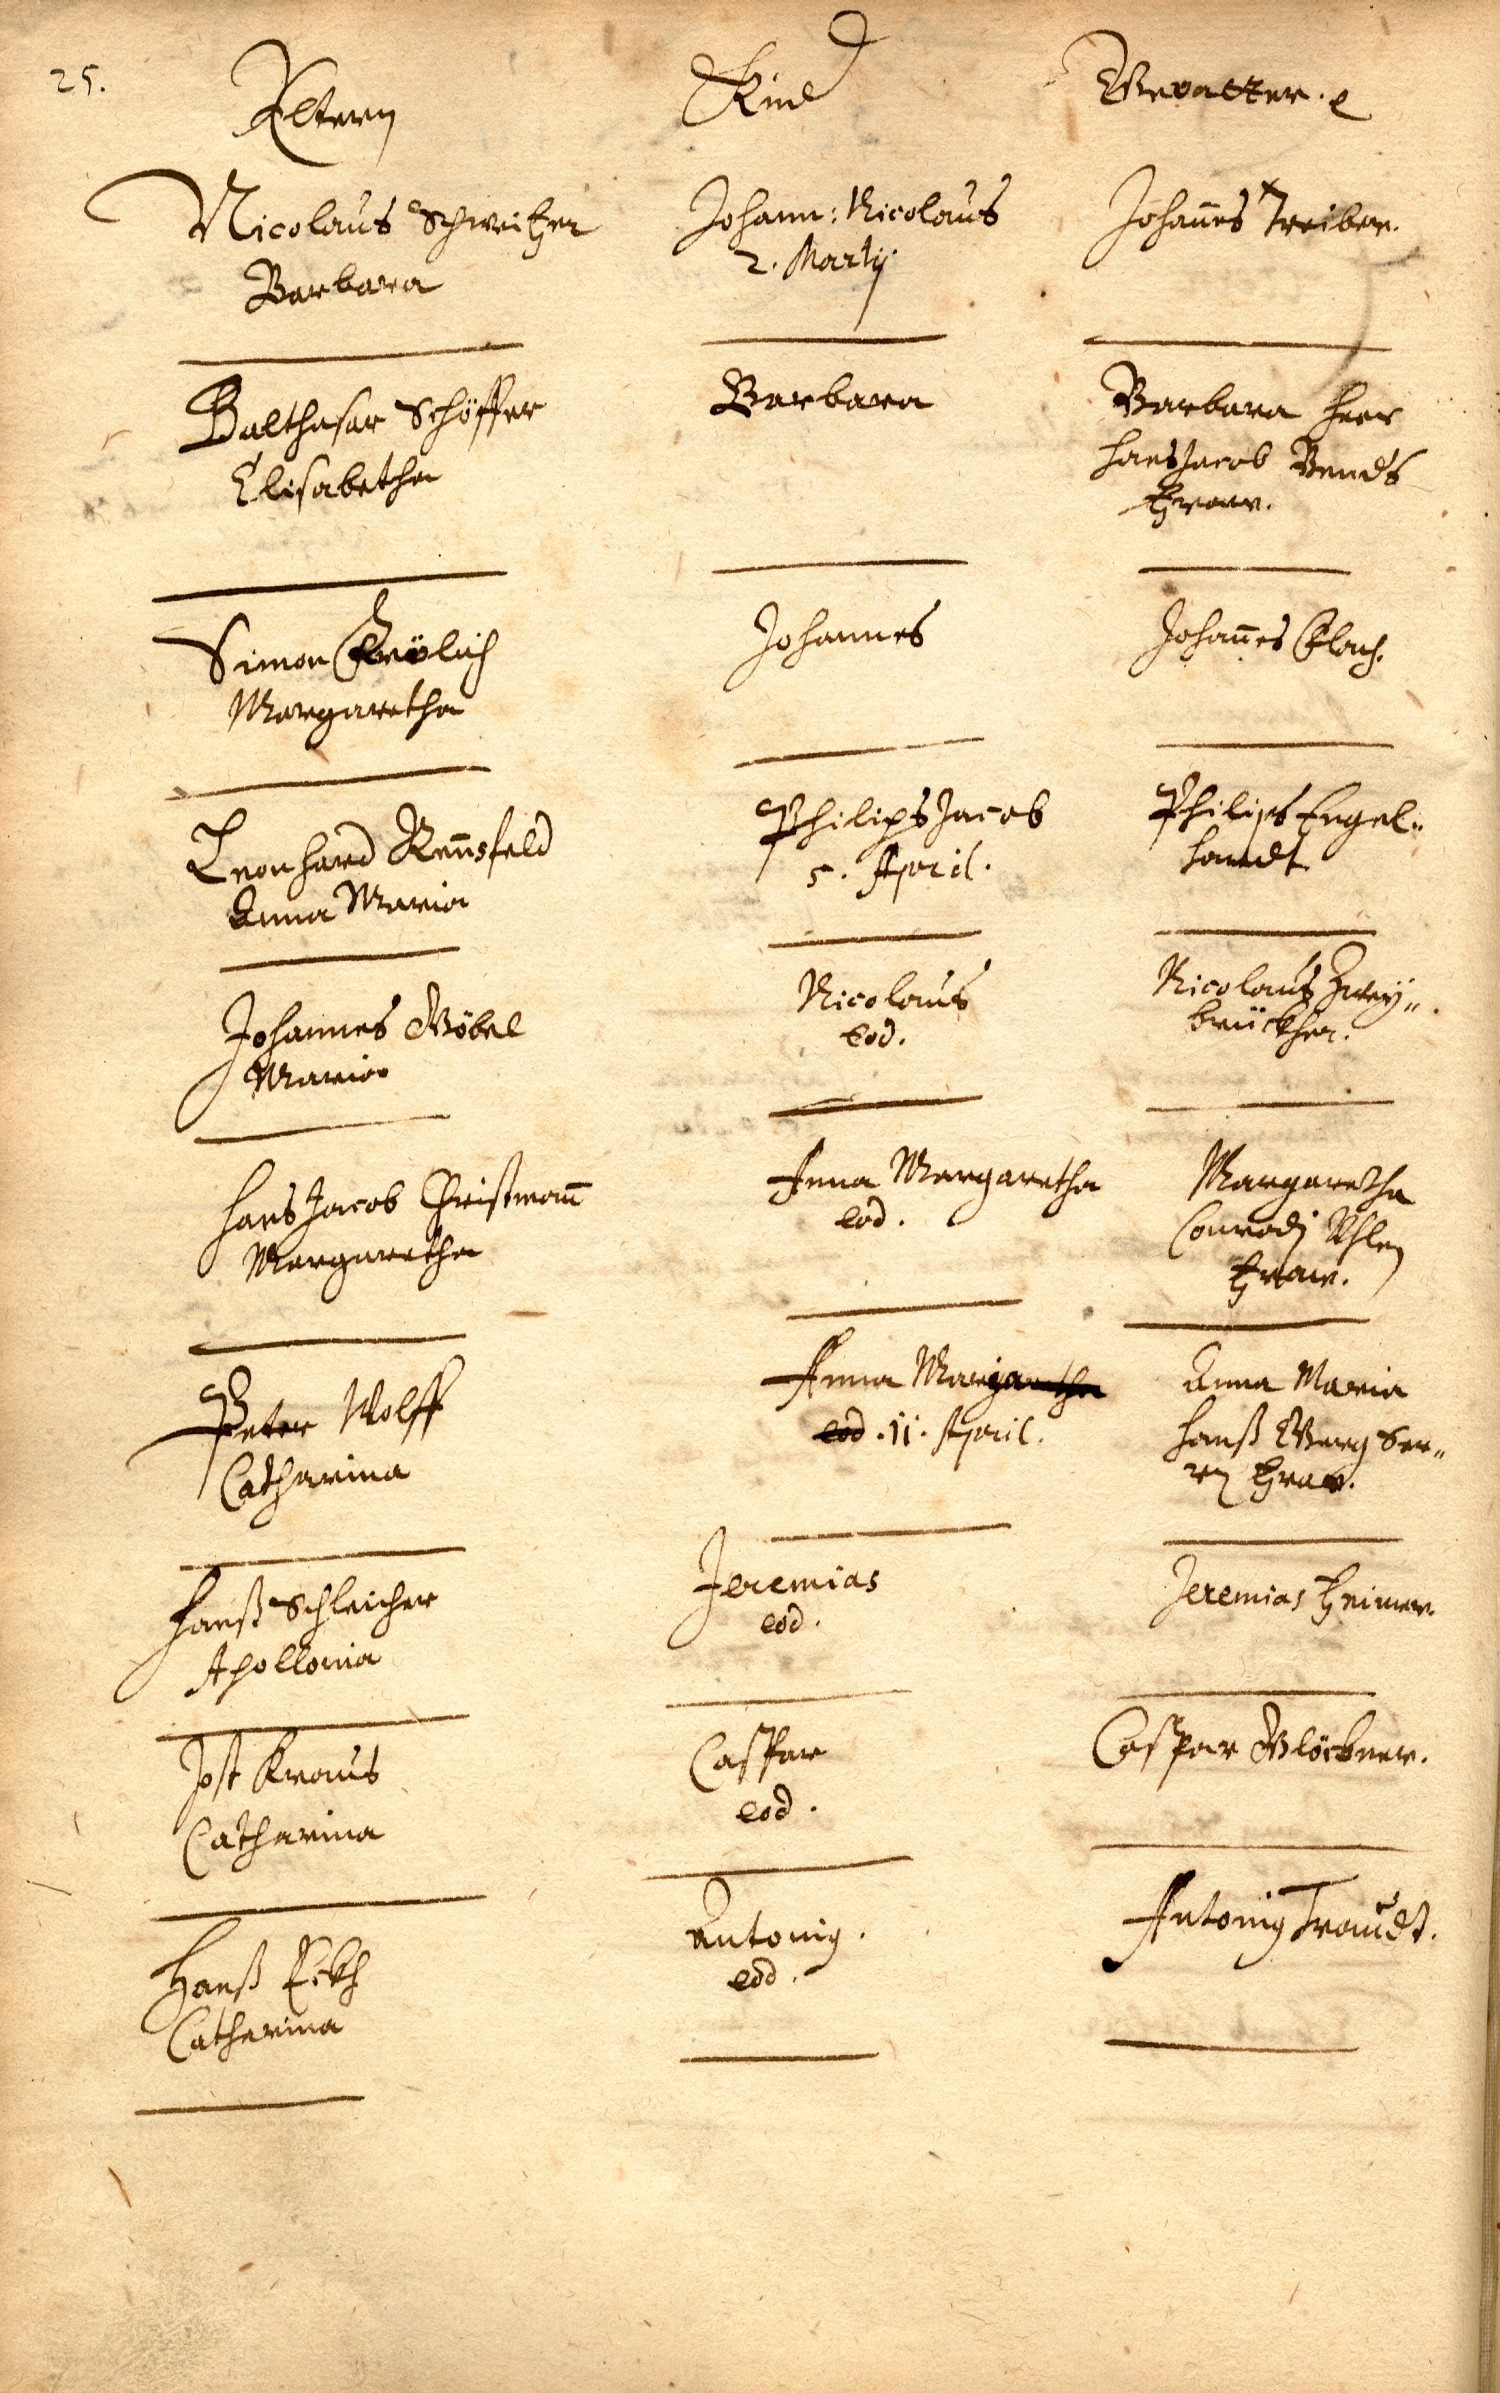 25.
Eltern
Kind
Gevatter.
Nicolaus Schweitzer
Barbara
Johann: Nicolaus
2. Martij.
Johañes Treiber.
Balthasar Schöffer
Elisabetha
Barbara
Barbara Herr
Hans Jacob
fraw.
Simon Frölich
Margaretha
Johannes
Johañes
Leonhard Reñsfeld
Anna Maria
Philips Jacob
5. April.
Philips Engel„
handt
Johannes Göbel
Maria
Nicolaus
eod.
Nicolaus Zwey„
brückher.
Hans Jacob Christmañ
Margaretha
Anna Margaretha
eod.
Margaretha
Conradj Uhlen
fraw.
Peter Wolff
Catharina
Anna Margaretha
eod. 11. April.
Anna Maria
Hanß Georg Ser„
rn fraw.
Hanß Schleicher
Apollonia
Jeremias
eod.
Jeremias Heimer.
Jost Kraus
Catharina
Caspar
eod.
Caspar Glöckner.
Hanß Eckh
Catharina
Antonig.
eod.
Antonig Traudt.